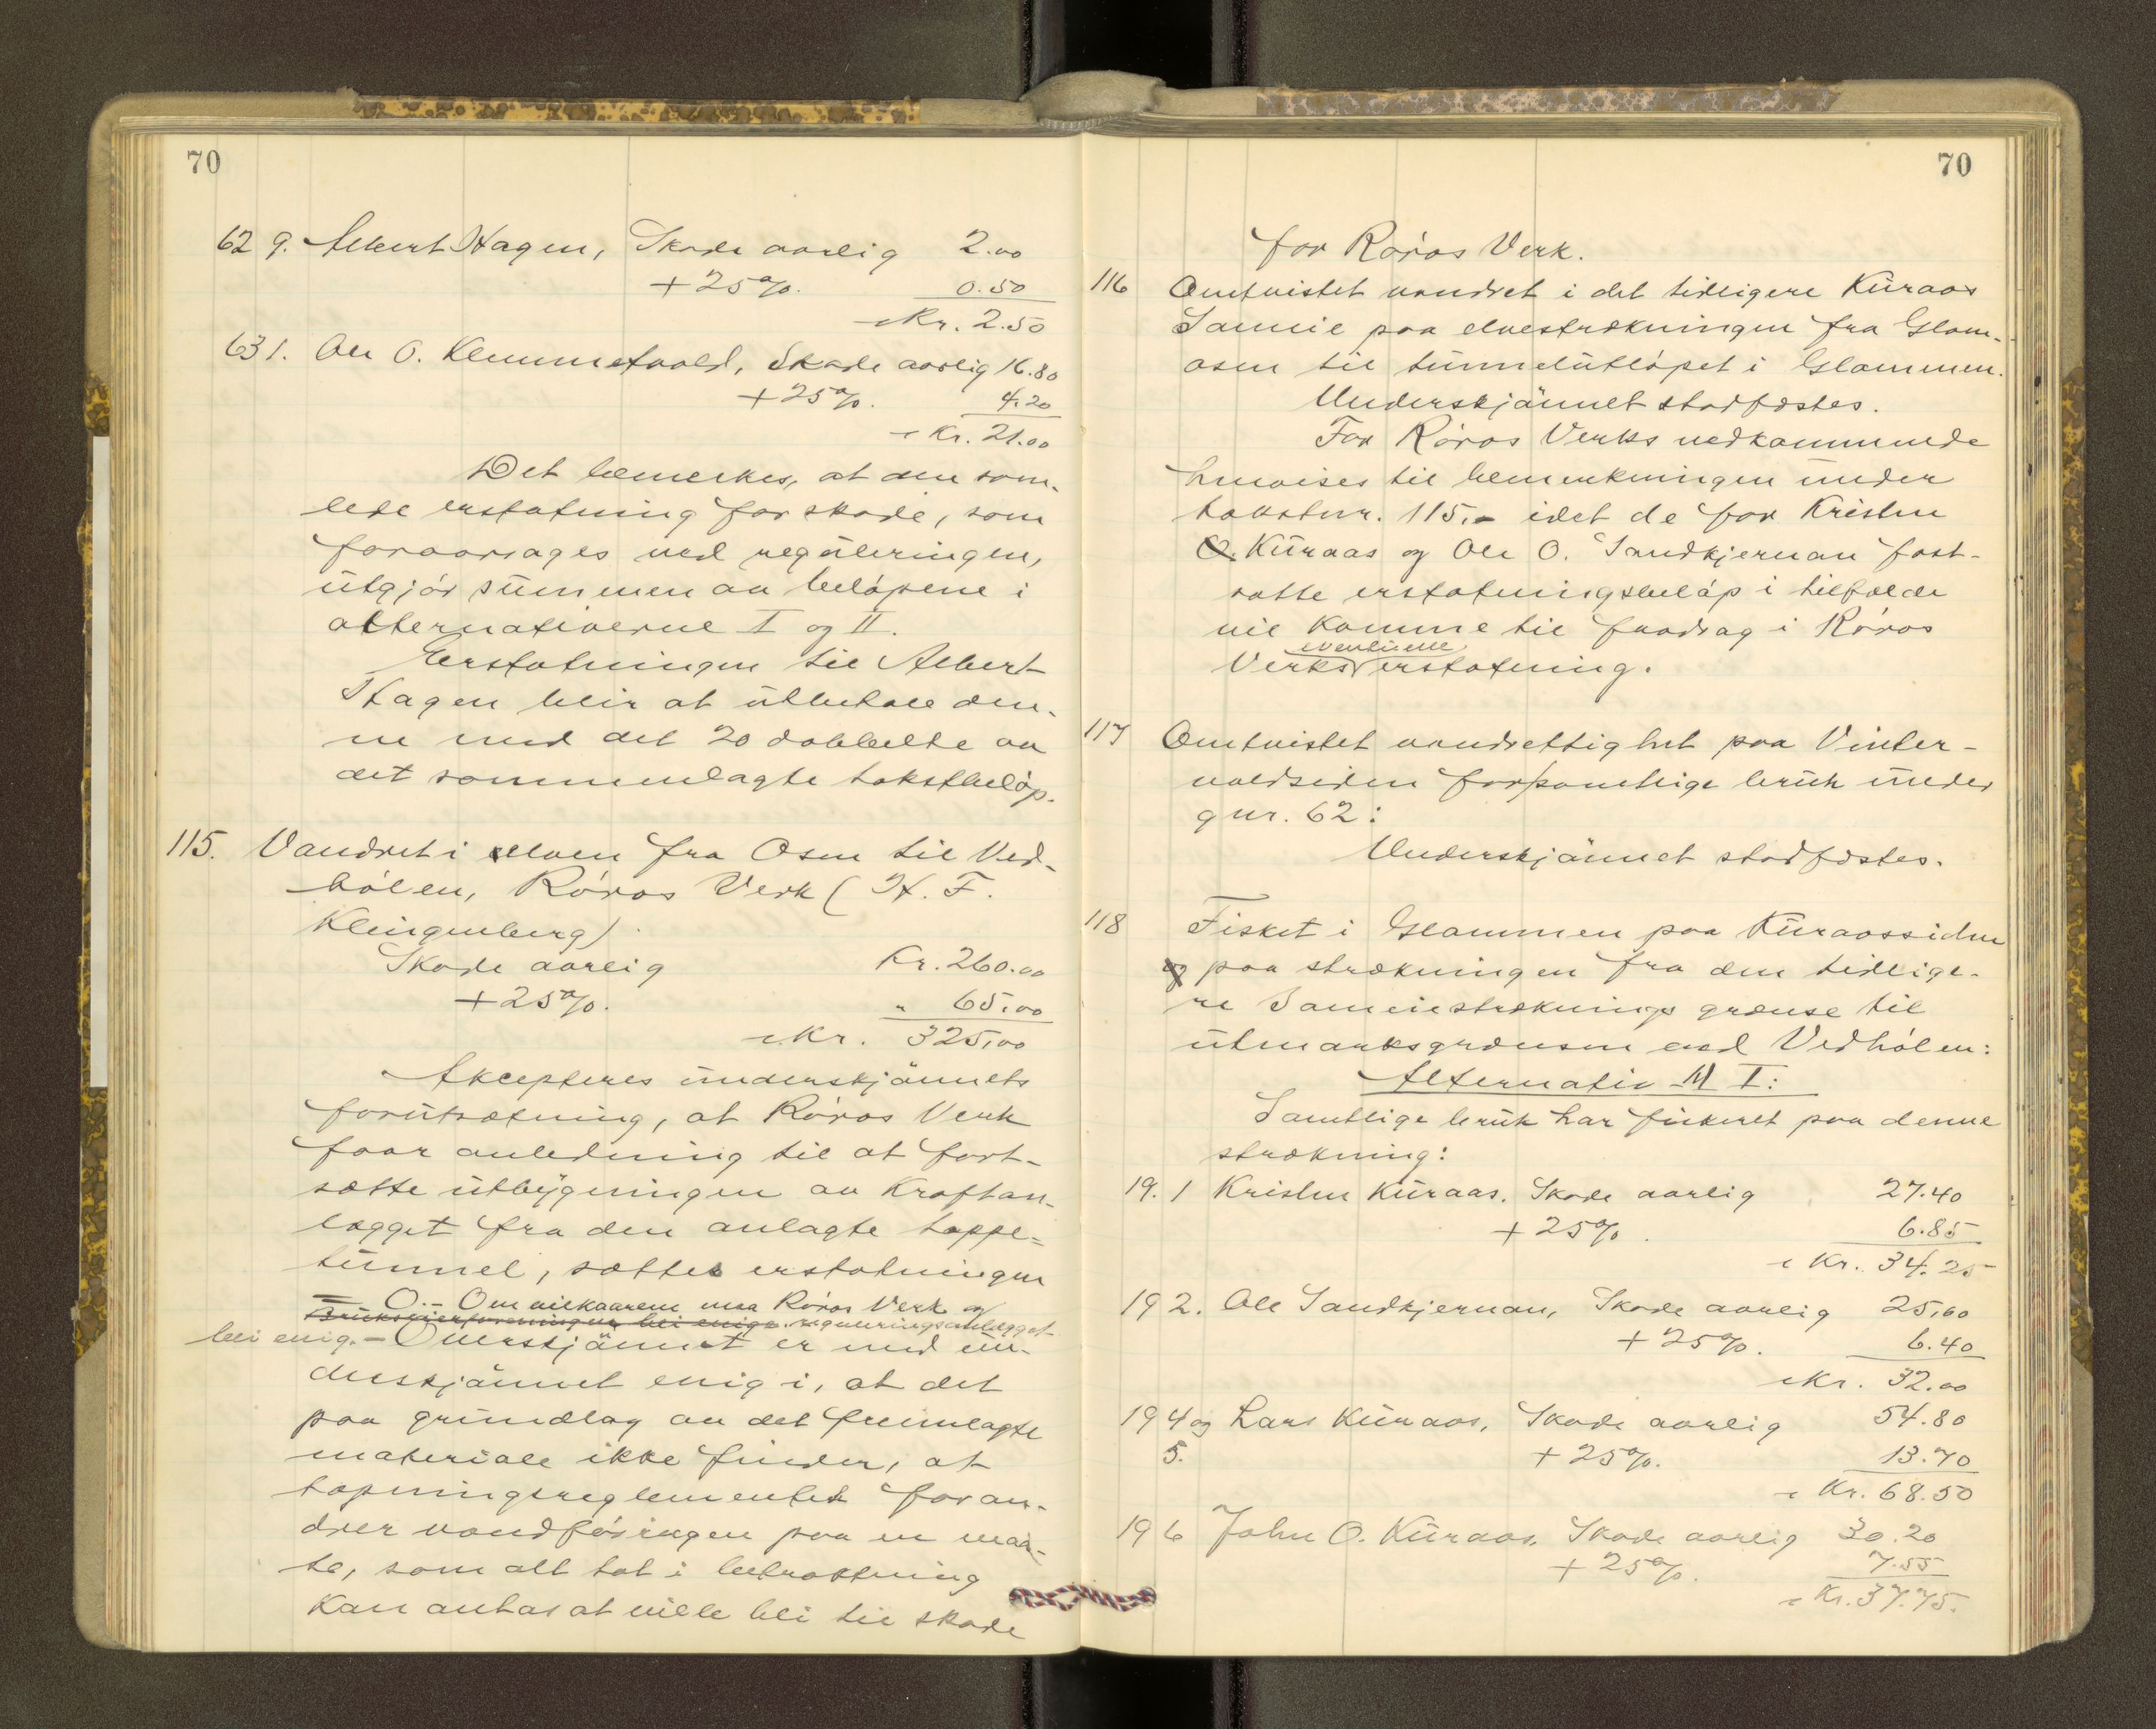 70
62 9. Albert Hagen, Skade aarlig 2.00
+ 25%. 0.50
Kr. 2.50
63 1. Ole O. Klemmetvold, Skade aarlig 16.80
+ 25%. 4.20
Kr. 21.00
Det bemerkes, at den sam-
lede erstatning for skade, som
foraarsages ved reguleringen,
utgjør summen av beløpene i
alternativerne I og II.
Erstatningen til Albert
Hagen blir at utbetale den-
ne med det 20 dobbelte av
det sammenlagte takstbeløp.
115. Vandret i elven fra Osen til Ved-
hølen, Røros Verk (H. F.
Klingenberg).
Skade aarlig Kr. 260.00
+ 25%. " 65.00
Kr. 325,00
Akcepteres underskjønnets
forutsætning, at Røros Verk
faar anledning til at fort-
sætte utbygningen av kraftan-
lægget fra den anlagte tappe-
tunnel, sættes erstatningen
= 0.- Om vilkaarene maa Røros Verk og
Brukseierforeningen bli enige. reguleringsanlægget
bli enig. - Overskjønnet er med un-
derskjønnet enig i, at det
paa grundlag av det fremlagte
materiale ikke finder, at
tapningsreglementet foran-
drer vandføringen paa en maa-
te, som alt tat i betragtning
kan antas at ville bli til skade
70
for Røros Verk.
116 Omtvistet vandret i det tidligere Kuraas
Sameie paa elvestrækningen fra Glom-
osen til tunnelutløpet i Glommen.
Underskjønnet stadfæstes.
For Røros Verks vedkommende
henvises til bemerkningen under
takstnr. 115,- idet de for Kristen
O. Kuraas og Ole O. Sandkjernan fast-
satte erstatningsbeløp i tilfælde
vil komme til fradrag i Røros
eventuelle
Verks erstatning.
117 Omtvistet vandrettighet paa Vinter-
voldsiden for samtlige bruk under
gnr. 62:
Underskjønnet stadfæstes.
118 Fisket i Glommen paa Kuraassiden
og paa strækningen fra den tidlige-
re Sameiestræknings grænse til
utmarksgrænsen ved Vedhølen:
Alternativ I:
Samtlige bruk har fiskeret paa denne
strækning:
19. 1 Kristen Kuraas. Skade aarlig 27.40
+ 25% 6.85
Kr. 34.25
19 2. Ole Sandkjernan, Skade aarlig 25,60
+ 25%. 6.40
Kr. 32.00
19 4 og Lars Kuraas, Skade aarlig 54.80
5. + 25%. 13.70
Kr. 68.50
19 6 John O. Kuraas, Skade aarlig 30.20
+ 25%. 7.55
Kr. 37.75.